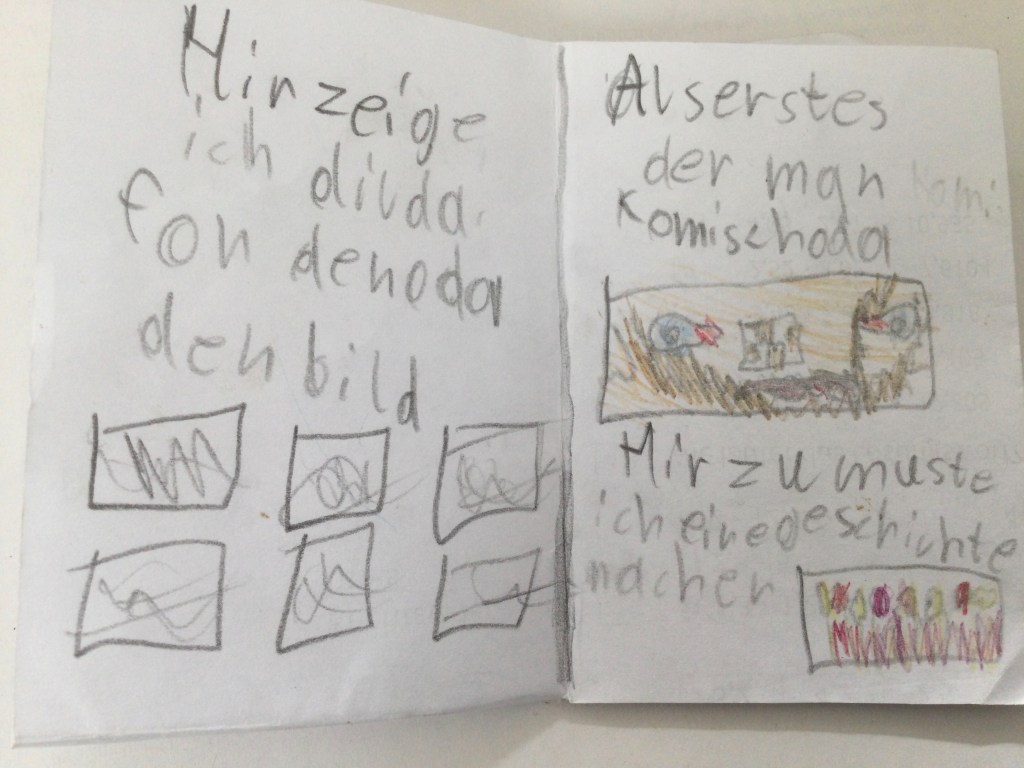 Hir zeige
ich dilda
fon denoda
den bild
Alserstes
der man
Komischoda
Hir zu muste
ich einegeschichte
machen